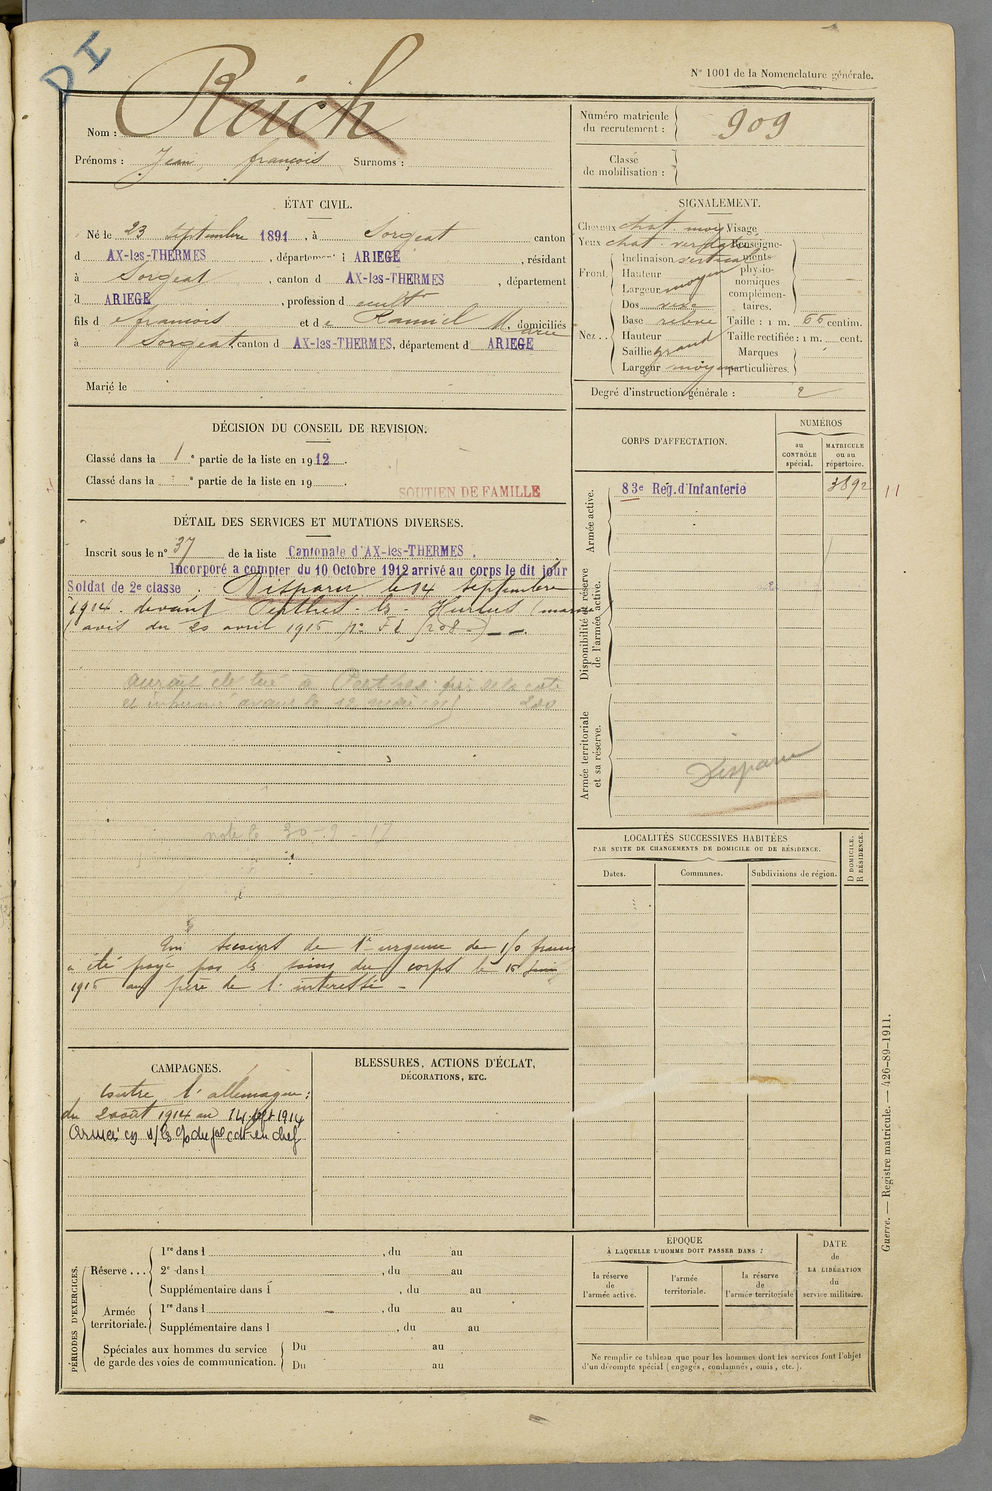 DI
N° 1001 de la Nomenclature générale.
Nom : Reich
Prénoms : Jean, françois Surnoms :
Numéro matricule du recrutement : 909
Classe de mobilisation :
ÉTAT CIVIL.
Né le 23 septembre 1891, à Sorgeat canton
d AX-les-THERMES, département d ARIEGE, résidant
à Sorgeat, canton d AX-les-THERMES, département
d ARIEGE, profession de cultr
fils de françois et de Marie, domiciliés
à Sorgeat canton d AX-les-THERMES, département d ARIEGE
Marié le
SIGNALEMENT.
Cheveux chat. moy Visage
Yeux chat. verdatre Renseignements physionomiques complémentaires.
Front. Inclinaison vertical
Hauteur
Largeur moyen
Nez.. Dos
Base
Hauteur grand
Saillie
Largeur moyen
Taille : 1 m. 65 centim.
Taille rectifiée : 1 m. cent.
Marques particulières.
Degré d'instruction générale : 2
DÉCISION DU CONSEIL DE REVISION.
Classé dans la 1e partie de la liste en 1912.
Classé dans la e partie de la liste en 19
SOUTIEN DE FAMILLE
CORPS D'AFFECTATION.
NUMÉROS
au CONTRÔLE spécial.
MATRICULE ou au répertoire.
Armée active.
83e Rég. d'Infanterie 3892
Disponibilité et réserve de l'armée active.
Armée territoriale et sa réserve.
Disparu
DÉTAIL DES SERVICES ET MUTATIONS DIVERSES.
Inscrit sous le n° 37 de la liste Cantonale d'AX-les-THERMES.
Incorporé a compter du 10 Octobre 1912 arrivé au corps le dit jour
Soldat de 2e classe. Disparu le 14 septembre
1914 devant Perthes-les-Hurlus (marne)
(avis du 20 avril 1915
aurait été tué à Perthes près de la cote
et inhumé avant le 12 mai 1915
note le 30-9-17
Un secours de 1re urgence de 150 francs
a été payé par les soins du corps le 15 juin
1915 au père de l'intéressé -
LOCALITÉS SUCCESSIVES HABITÉES
PAR SUITE DE CHANGEMENTS DE DOMICILE OU DE RÉSIDENCE.
Dates. Communes. Subdivisions de région.
D DOMICILE. R RÉSIDENCE.
CAMPAGNES.
Contre l'allemagne :
du 2 août 1914 au 14 sept 1914
BLESSURES, ACTIONS D'ÉCLAT,
DÉCORATIONS, ETC.
PÉRIODES D'EXERCICES.
Réserve... 1re dans l , du au
2e dans l , du au
Supplémentaire dans l , du au
Armée territoriale. 1re dans l , du au
Supplémentaire dans l , du au
Spéciales aux hommes du service de garde des voies de communication. Du au
Du au
ÉPOQUE
À LAQUELLE L'HOMME DOIT PASSER DANS :
la réserve de l'armée active.
l'armée territoriale.
la réserve de l'armée territoriale
DATE de LA LIBÉRATION du service militaire.
Ne remplir ce tableau que pour les hommes dont les services font l'objet
d'un décompte spécial (engagés, condamnés, omis, etc.).
Guerre. — Registre matricule. — 426-89-1911.